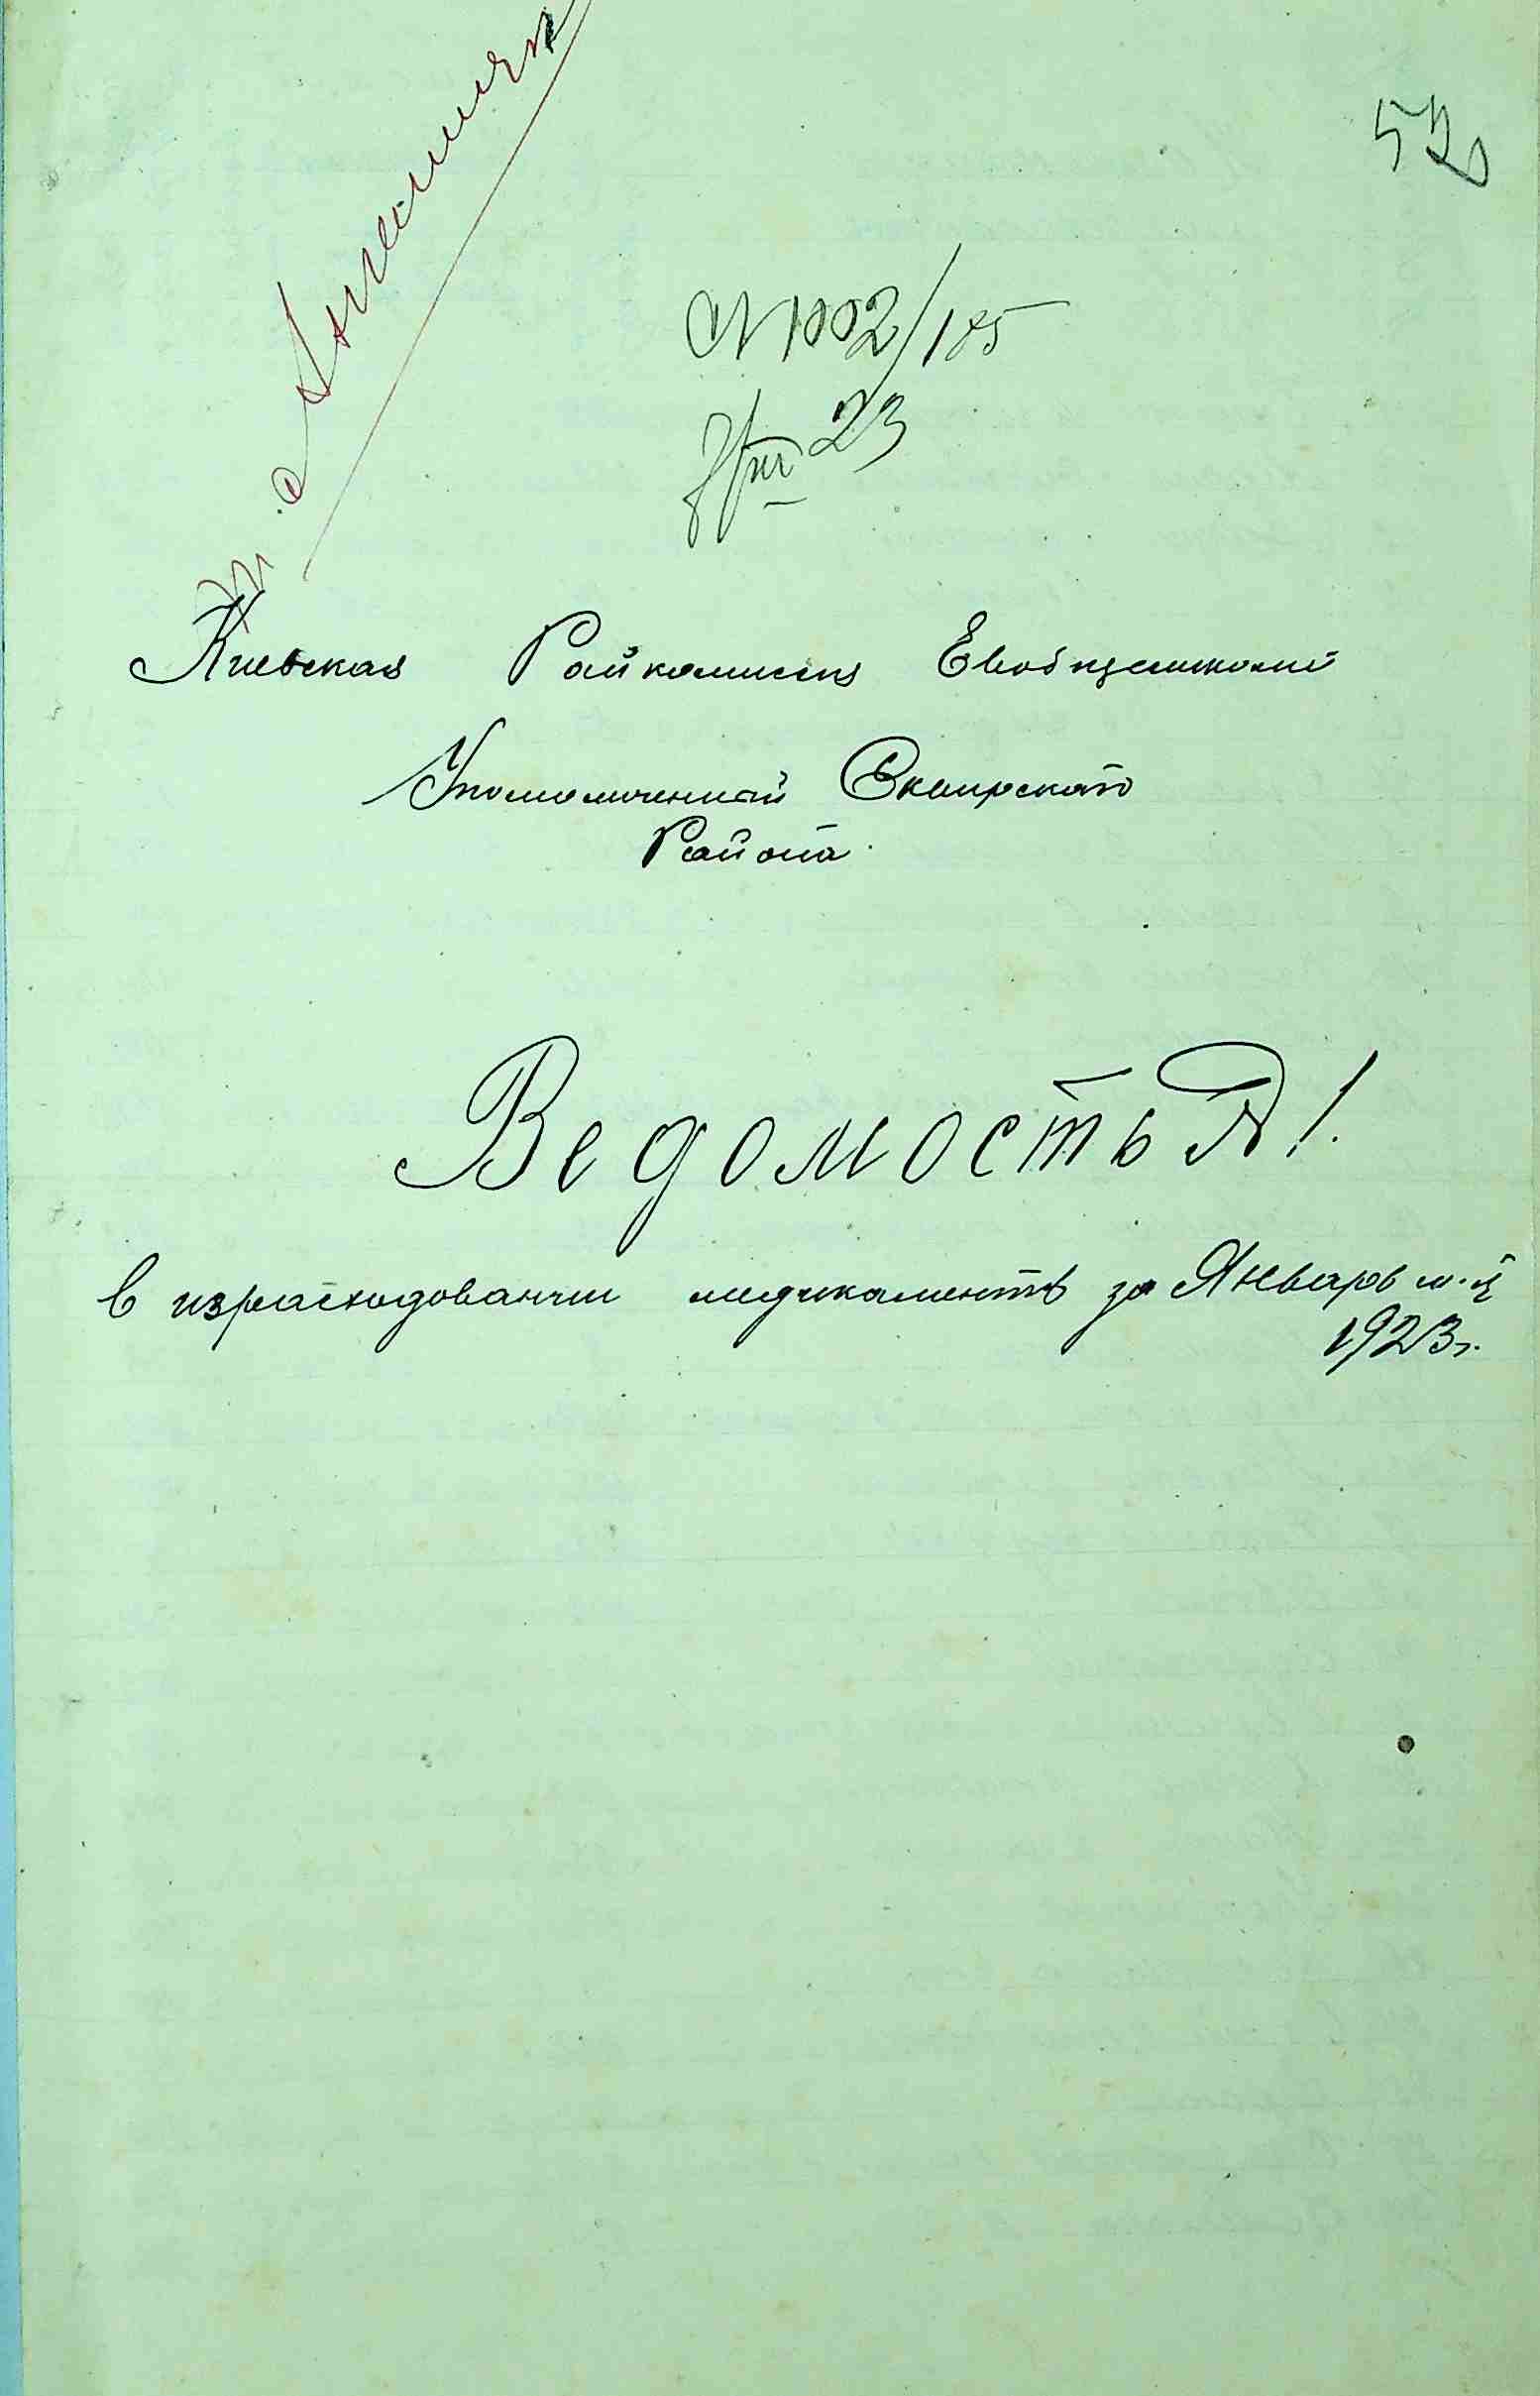 52
№ 1002/185
7/III 23
Киевская Райкомиссия Евобщесткома
Уполомоченный Сквирского
Района.
Ведомость А!
в израсходовании медикаментъ за Январь м-ц
1923 г.